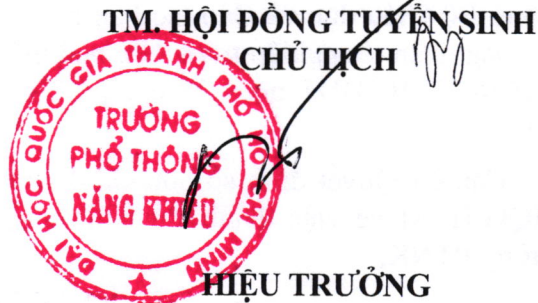 TM. HỘI ĐỒNG TUYỂN SINH
CHỦ TỊCH
ĐẠI HỌC QUỐC GIA THÀNH PHỐ HỒ CHÍ MINH
TRƯỜNG
PHỔ THÔNG
NĂNG KHIẾU
HIỆU TRƯỞNG